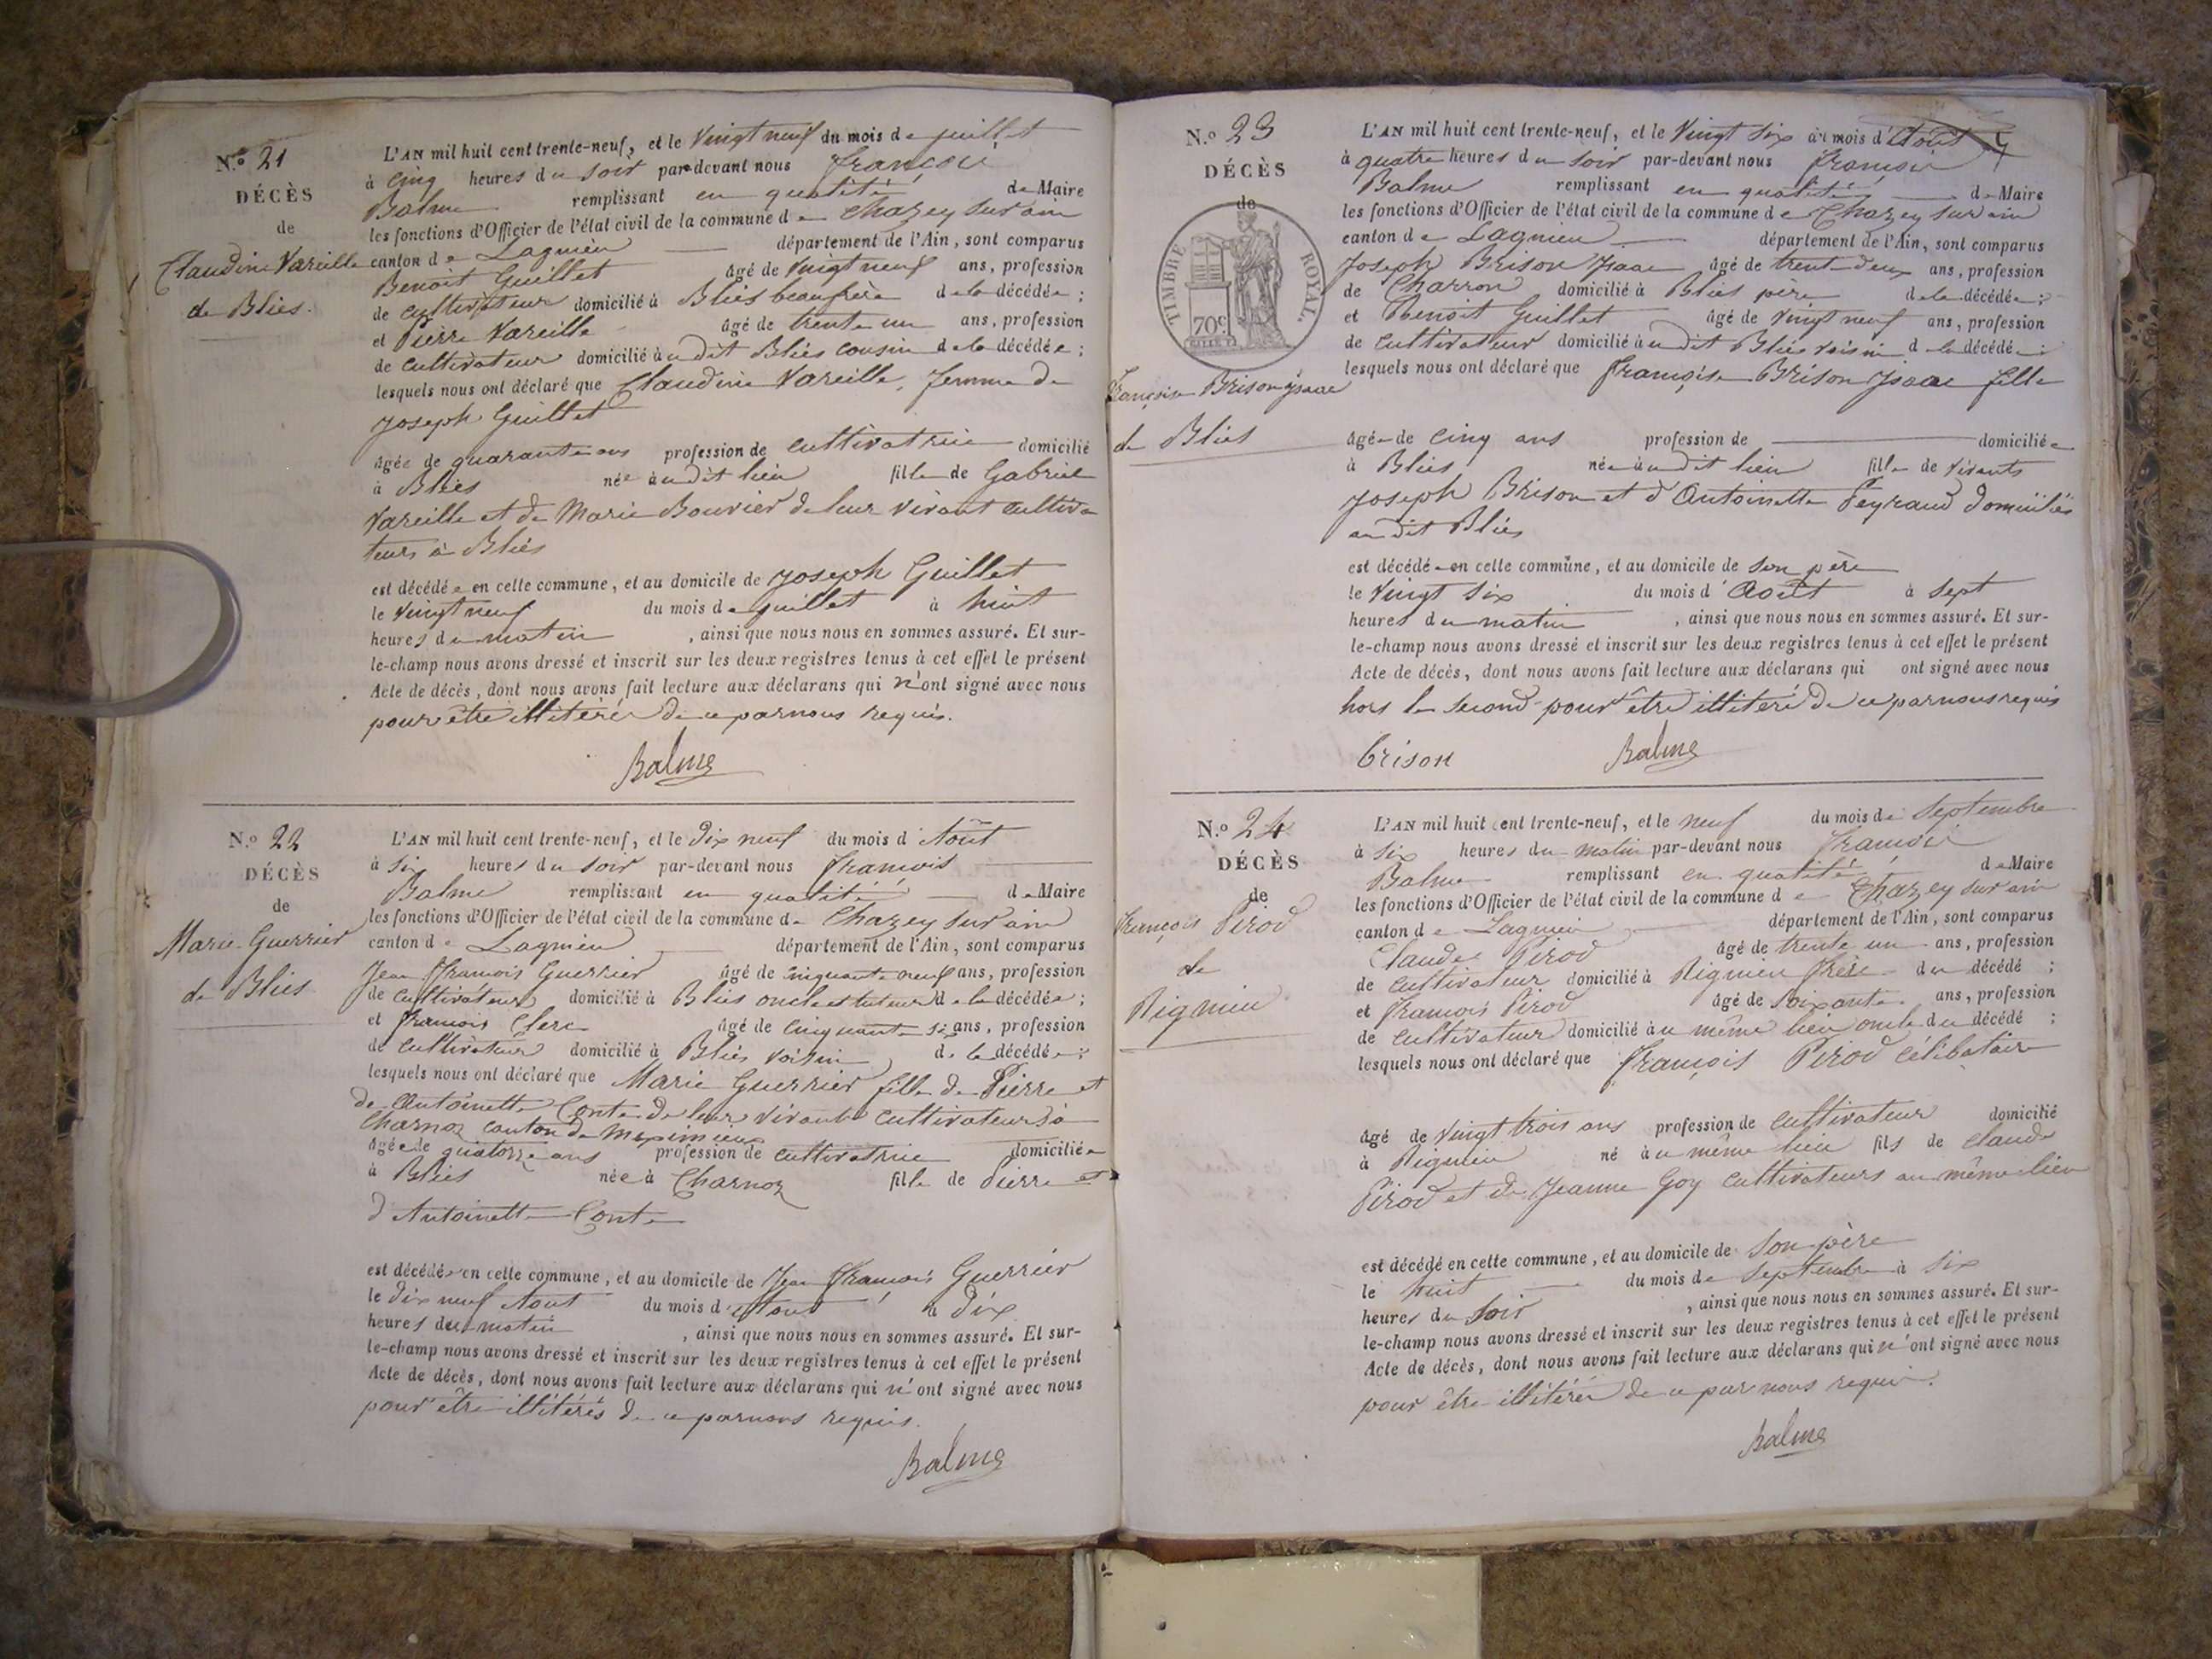 N.o 21
DÉCÈS
de
Claudine Vareille
de Bliés.
L'AN mil huit cent trente-neuf, et le Vingt neuf du mois de juillet
à cinq heures du soir par-devant nous François
Balme remplissant en qualité de Maire
les fonctions d'Officier de l'état civil de la commune de Chazey sur ain
canton de Lagnieu département de l'Ain, sont comparus
Benoit Guillet âgé de Vingt neuf ans, profession
de cultivateur domicilié à Bliés beaufrère de la décédée ;
et Pierre Vareille âgé de trente un ans, profession
de cultivateur domicilié au dit Bliés cousin de la décédée ;
lesquels nous ont déclaré que Claudine Vareille, femme de
Joseph Guillet
âgée de quarante ans profession de cultivatrice domicilié
à Bliés née au dit lieu fille de Gabriel
Vareille et de Marie Bouvier de leur vivant cultiva
teurs à Bliés
est décédée en cette commune, et au domicile de Joseph Guillet
le Vingt neuf du mois de juillet à huit
heures du matin , ainsi que nous nous en sommes assuré. Et sur-
le-champ nous avons dressé et inscrit sur les deux registres tenus à cet effet le présent
Acte de décès, dont nous avons fait lecture aux déclarans qui n'ont signé avec nous
pour être illitérés de ce par nous requis.
Balme
N.o 22
DÉCÈS
de
Marie Guerrier
de Bliés
L'AN mil huit cent trente-neuf, et le dix neuf du mois d'Aout
à six heures du soir par-devant nous François
Balme remplissant en qualité de Maire
les fonctions d'Officier de l'état civil de la commune de Chazey sur ain
canton de Lagnieu département de l'Ain, sont comparus
Jean François Guerrier âgé de cinquante neuf ans, profession
de cultivateur domicilié à Bliés oncle et tuteur de la décédée ;
et François Clerc âgé de cinquante six ans, profession
de cultivateur domicilié à Bliés voisin de la décédée ;
lesquels nous ont déclaré que Marie Guerrier fille de Pierre et
de Antoinette Conte de leur vivant cultivateurs à
Charnoz canton de Meximieux
âgée de quatorze ans profession de cultivatrice domiciliée
à Bliés née à Charnoz fille de Pierre et
d'Antoinette Conte
est décédée en cette commune, et au domicile de Jean François Guerrier
le dix neuf Aout du mois d'Aout à dix
heures du matin , ainsi que nous nous en sommes assuré. Et sur-
le-champ nous avons dressé et inscrit sur les deux registres tenus à cet effet le présent
Acte de décès, dont nous avons fait lecture aux déclarans qui n'ont signé avec nous
pour être illitérés de ce par nous requis.
Balme
N.o 23
DÉCÈS
de
TIMBRE ROYAL.
70c
Françoise Brison Isaac
de Bliés
L'AN mil huit cent trente-neuf, et le Vingt six du mois d'Aout
à quatre heures du soir par-devant nous François
Balme remplissant en qualité de Maire
les fonctions d'Officier de l'état civil de la commune de Chazey sur ain
canton de Lagnieu département de l'Ain, sont comparus
Joseph Brison Isaac âgé de trent deux ans, profession
de Charron domicilié à Bliés père de la décédée ;
et Benoit Guillet âgé de Vingt neuf ans, profession
de cultivateur domicilié au dit Bliés voisin de la décédée ;
lesquels nous ont déclaré que Françoise Brison Isaac fille
âgée de cinq ans profession de domiciliée
à Bliés née au dit lieu fille de vivants
Joseph Brison et d'Antoinette Peyraud domiciliés
au dit Bliés
est décédée en cette commune, et au domicile de son père
le Vingt six du mois d'Aout à sept
heures du matin , ainsi que nous nous en sommes assuré. Et sur-
le-champ nous avons dressé et inscrit sur les deux registres tenus à cet effet le présent
Acte de décès, dont nous avons fait lecture aux déclarans qui ont signé avec nous
hors le second pour être illitéré de ce par nous requis
brison Balme
N.o 24
DÉCÈS
de
François Pirod
de
Rignieu
L'AN mil huit cent trente-neuf, et le neuf du mois de Septembre
à six heures du matin par-devant nous François
Balme remplissant en qualité de Maire
les fonctions d'Officier de l'état civil de la commune de Chazey sur ain
canton de Lagnieu département de l'Ain, sont comparus
Claude Pirod âgé de trente un ans, profession
de cultivateur domicilié à Rignieu frère du décédé ;
et François Pirod âgé de soixante ans, profession
de cultivateur domicilié au même lieu oncle du décédé ;
lesquels nous ont déclaré que François Pirod célibataire
âgé de vingt trois ans profession de cultivateur domicilié
à Rignieu né au même lieu fils de Claude
Pirod et de Jeanne Goy cultivateurs au même lieu
est décédé en cette commune, et au domicile de son père
le huit du mois de Septembre à six
heures du soir , ainsi que nous nous en sommes assuré. Et sur-
le-champ nous avons dressé et inscrit sur les deux registres tenus à cet effet le présent
Acte de décès, dont nous avons fait lecture aux déclarans qui n'ont signé avec nous
pour être illitérés de ce par nous requis.
Balme